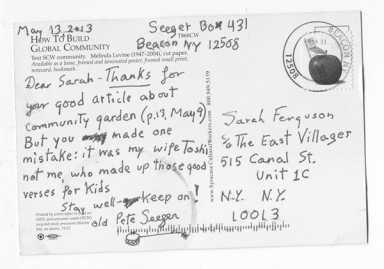 May 13, 2013
Seeger Box 431
Beacon NY 12508
HOW TO BUILD
GLOBAL COMMUNITY
T80SCW
Text SCW community. Melinda Levine (1947–2004), cut paper.
Available as a laser, framed and laminated poster, framed small print,
notecard, bookmark.
Dear Sarah - Thanks for
your good article about
community garden (p.13, May 9)
But you made one
mistake: it was my wife Toshi,
not me, who made up those good
verses for kids
Stay well- Keep on!
old Pete Seeger
800.949.5139
www.SyracuseCulturalWorkers.com
BEACON, NY
12508
Sarah Ferguson
c/o The East Villager
515 Canal St.
Unit 1C
N.Y. N.Y.
10013